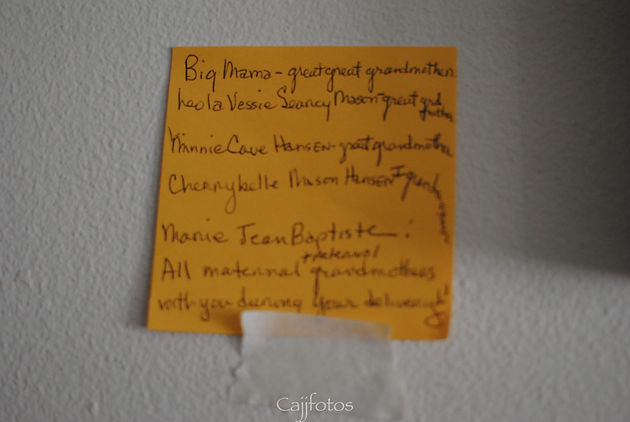 Big Mama - great great grandmother
Leola Vessie Searcy Mason - great grd
mother
Minnie Cave Hansen - great grandmother
Cherrybelle Mason Hansen grand
Marie Jean Baptiste
+ paternal
All maternal grandmothers
with you during your delivery
Cajjfotos